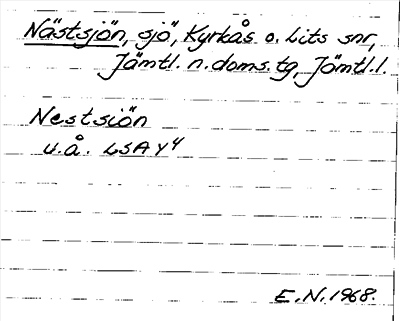 Nästsjön, sjö, Kyrkås o. Lits snr,
Jämtl. n. doms. tg, Jämtl. l.
Nestsiön
u.å. LSA Y4
E.N. 1968.